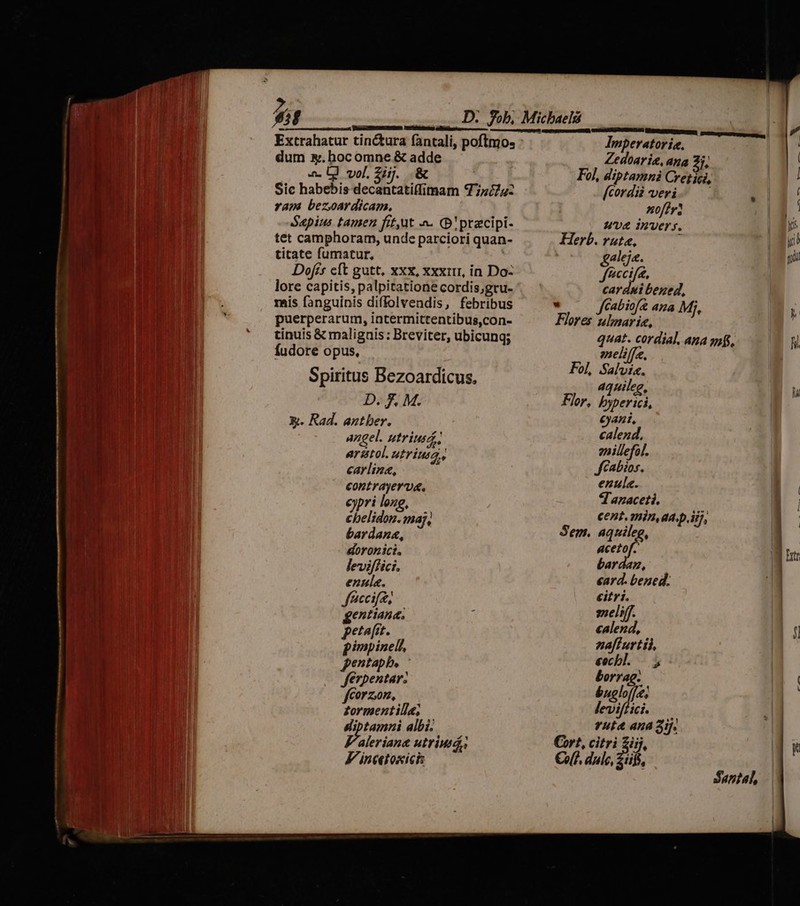 D. Joh. Michaelis
Extrahatur tinctura santali, postmo-
dum ℞. hoc omne & adde
vol. ʒiij. &
Sic habebis decantatissimam Tinctu-
ram bezoardicam.
Sæpius tamen fit, ut præcipi-
tet camphoram, unde parciori quan-
titate sumatur.
Dosis est gutt. xxx, xxxiii, in Do-
lore capitis, palpitatione cordis, gru-
mis sanguinis dissolvendis, febribus
puerperarum, intermittentibus, con-
tinuis & malignis: Breviter, ubicunq;
sudore opus,
Spiritus Bezoardicus.
D. J. M.
℞. Rad. anther.
angel. utriusq,
aristol. utriusq,
carlinæ,
contrayervæ,
cypri long.
chelidon. maj,
bardanæ,
doronici.
levistici.
enulæ.
succisæ,
gentianæ,
petasit.
pimpinell,
pentaph.
serpentar.
scorzon,
tormentillæ,
diptamni albi.
Valerianæ utriusq,
Vincetoxicis
Imperatoriæ.
Zedoariæ, ana ʒj.
Fol, diptamni Cretici,
scordii veri
nostri
uvæ invers.
Herb. rutæ,
galejæ.
succisæ,
cardui bened,
scabiosæ ana Mj,
Flores ulmariæ,
quat. cordial. ana mß,
melissæ,
Fol, Salviæ.
aquileg,
Flor. hyperici,
cyani,
calend,
millefol.
scabios.
enulæ.
Tanaceti.
cent. min, aa. p. iij,
Sem. aquileg,
acetos.
bardan,
card. bened.
citri.
meliss.
calend,
nasturtii,
cochl.
borrag.
buglossæ,
levistici.
rutæ ana ʒij.
Cort, citri ʒiij,
Cost. dulc, ʒiiß,
Santal,